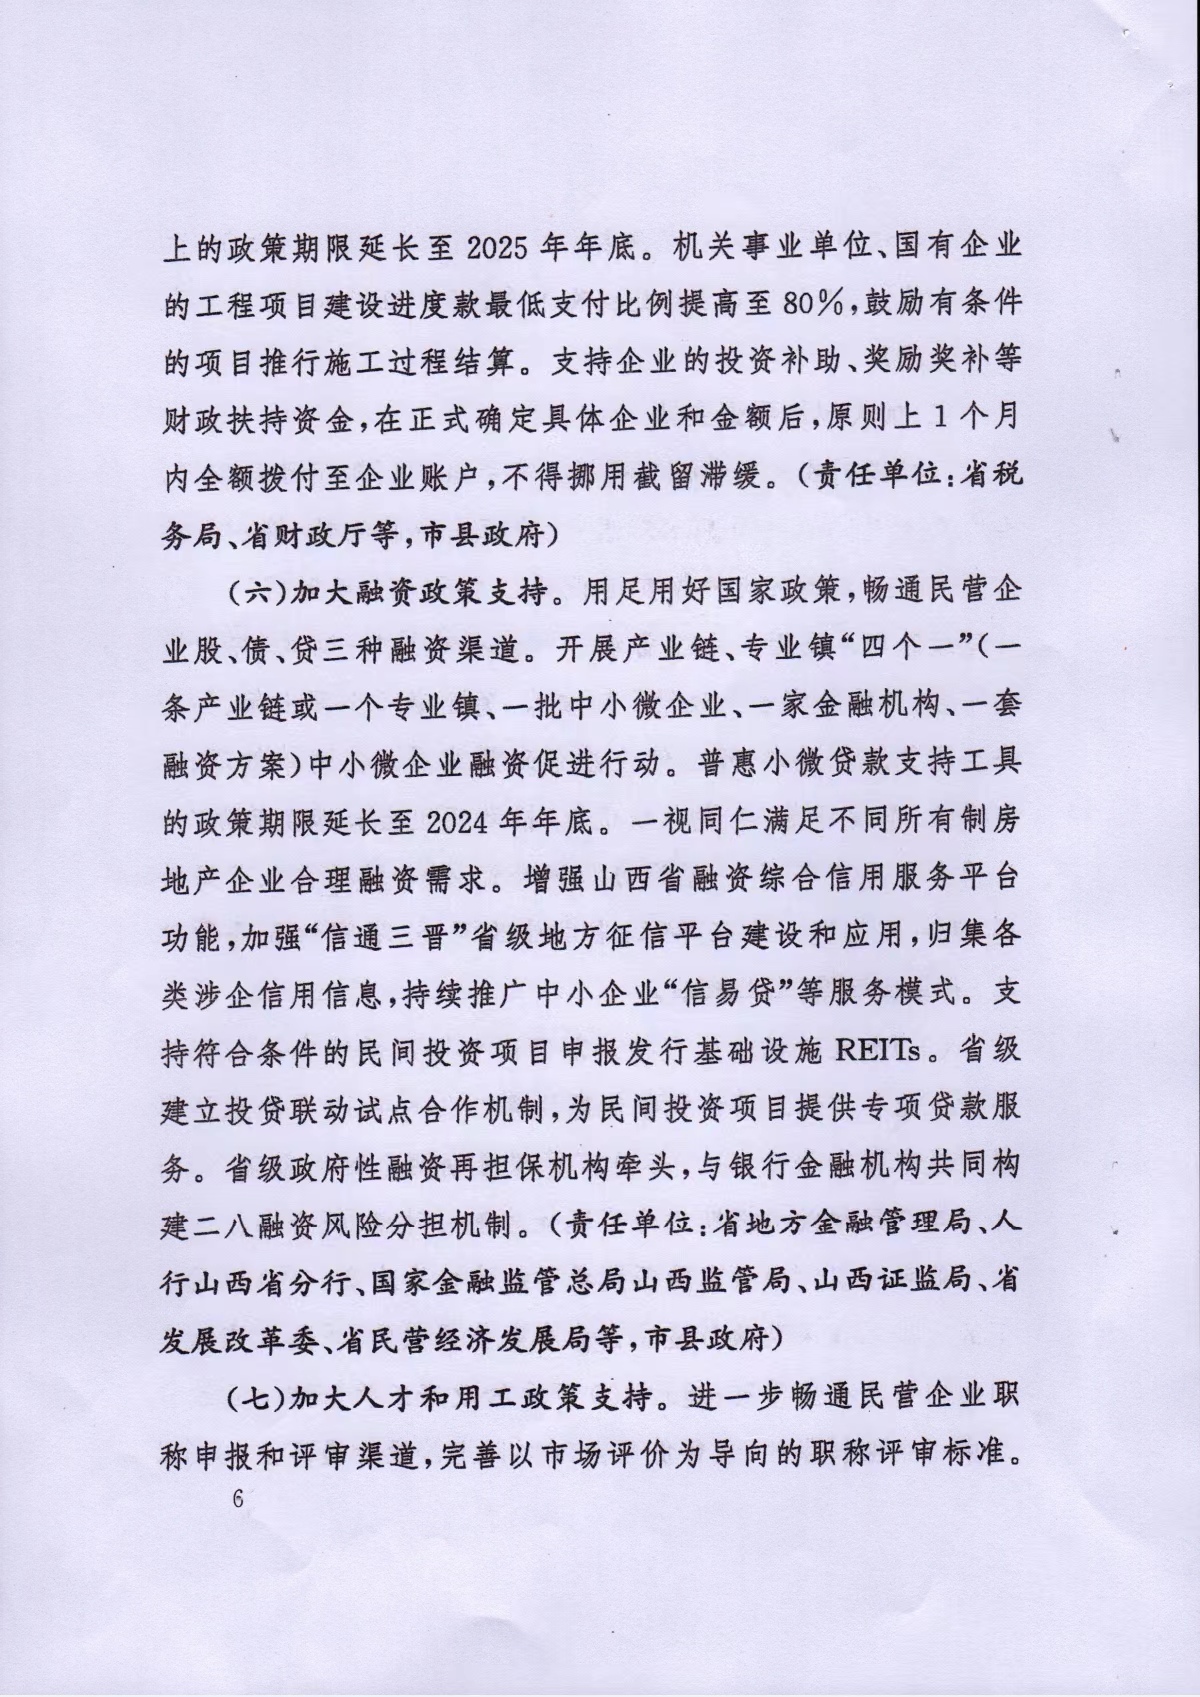 上的政策期限延长至 2025 年年底。机关事业单位、国有企业
的工程项目建设进度款最低支付比例提高至 80%,鼓励有条件
的项目推行施工过程结算。支持企业的投资补助、奖励奖补等
财政扶持资金,在正式确定具体企业和金额后,原则上 1 个月
内全额拨付至企业账户,不得挪用截留滞缓。(责任单位:省税
务局、省财政厅等,市县政府)
(六)加大融资政策支持。用足用好国家政策,畅通民营企
业股、债、贷三种融资渠道。开展产业链、专业镇“四个一”(一
条产业链或一个专业镇、一批中小微企业、一家金融机构、一套
融资方案)中小微企业融资促进行动。普惠小微贷款支持工具
的政策期限延长至 2024 年年底。一视同仁满足不同所有制房
地产企业合理融资需求。增强山西省融资综合信用服务平台
功能,加强“信通三晋”省级地方征信平台建设和应用,归集各
类涉企信用信息,持续推广中小企业“信易贷”等服务模式。支
持符合条件的民间投资项目申报发行基础设施 REITs。省级
建立投贷联动试点合作机制,为民间投资项目提供专项贷款服
务。省级政府性融资再担保机构牵头,与银行金融机构共同构
建二八融资风险分担机制。(责任单位:省地方金融管理局、人
行山西省分行、国家金融监管总局山西监管局、山西证监局、省
发展改革委、省民营经济发展局等,市县政府)
(七)加大人才和用工政策支持。进一步畅通民营企业职
称申报和评审渠道,完善以市场评价为导向的职称评审标准。
6